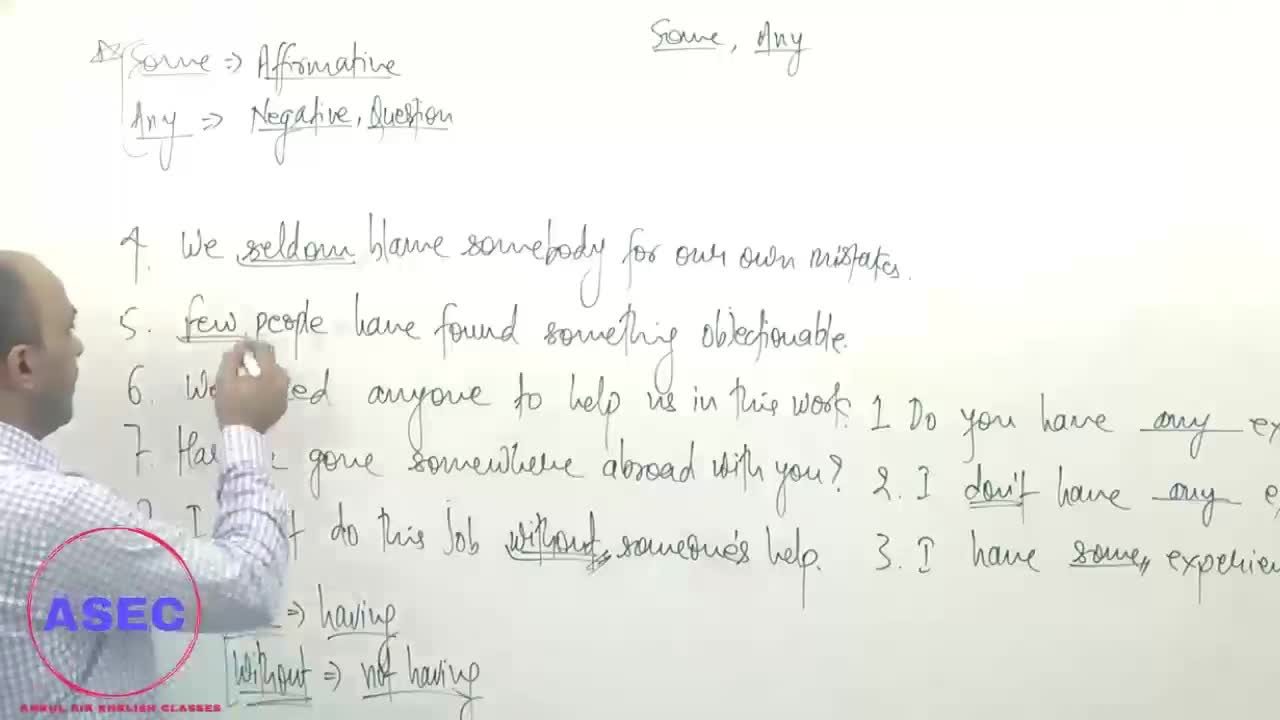 Some, Any
Some => Affirmative
Any => Negative, Question
4. We seldom blame somebody for our own mistakes.
5. few people have found something objectionable.
6. anyone to help us in this work.
7. gone somewhere abroad with you?
I do this Job without someone's help.
=> having
Without => not having
1 Do you have any
2. I don't have any
3. I have some
ASEC
ANKUL SIR ENGLISH CLASSES